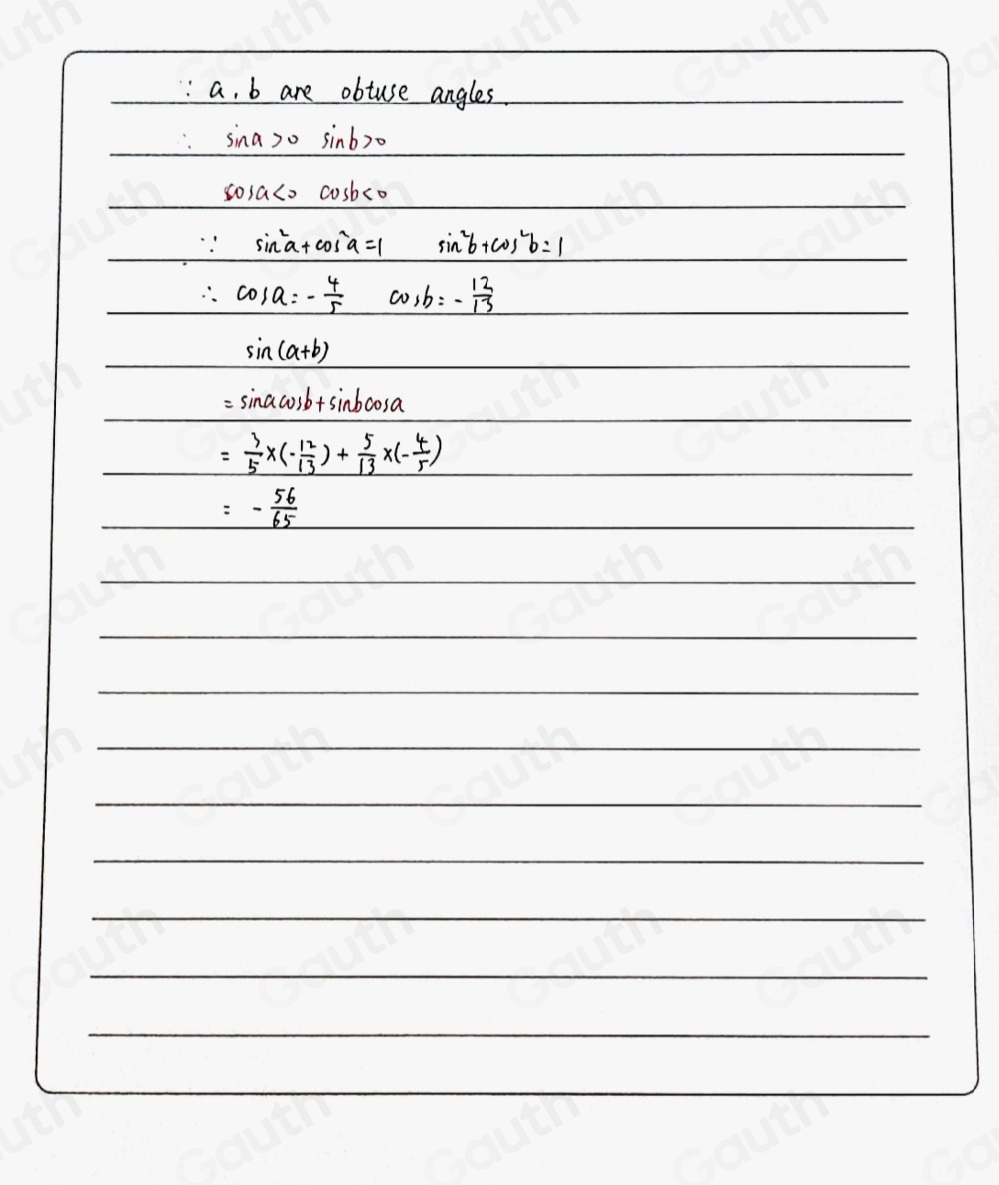 ∵ a, b are obtuse angles.
∴ sina>0 sinb>0
cosa<0 cosb<0
∵ sin²a+cos²a=1 sin²b+cos²b=1
∴ cosa=-4/5 cosb=-12/13
sin(a+b)
=sinacosb+sinbcosa
= 3/5×(-12/13)+5/13×(-4/5)
= -56/65